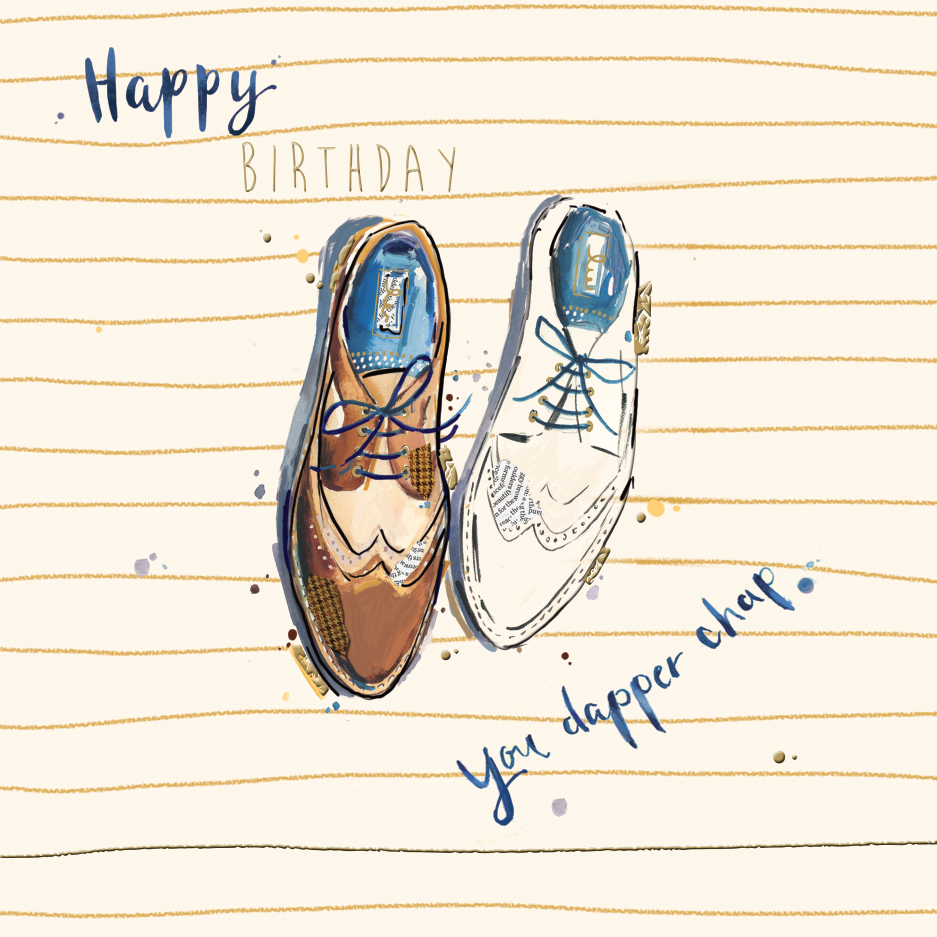 Happy
BIRTHDAY
You dapper chap